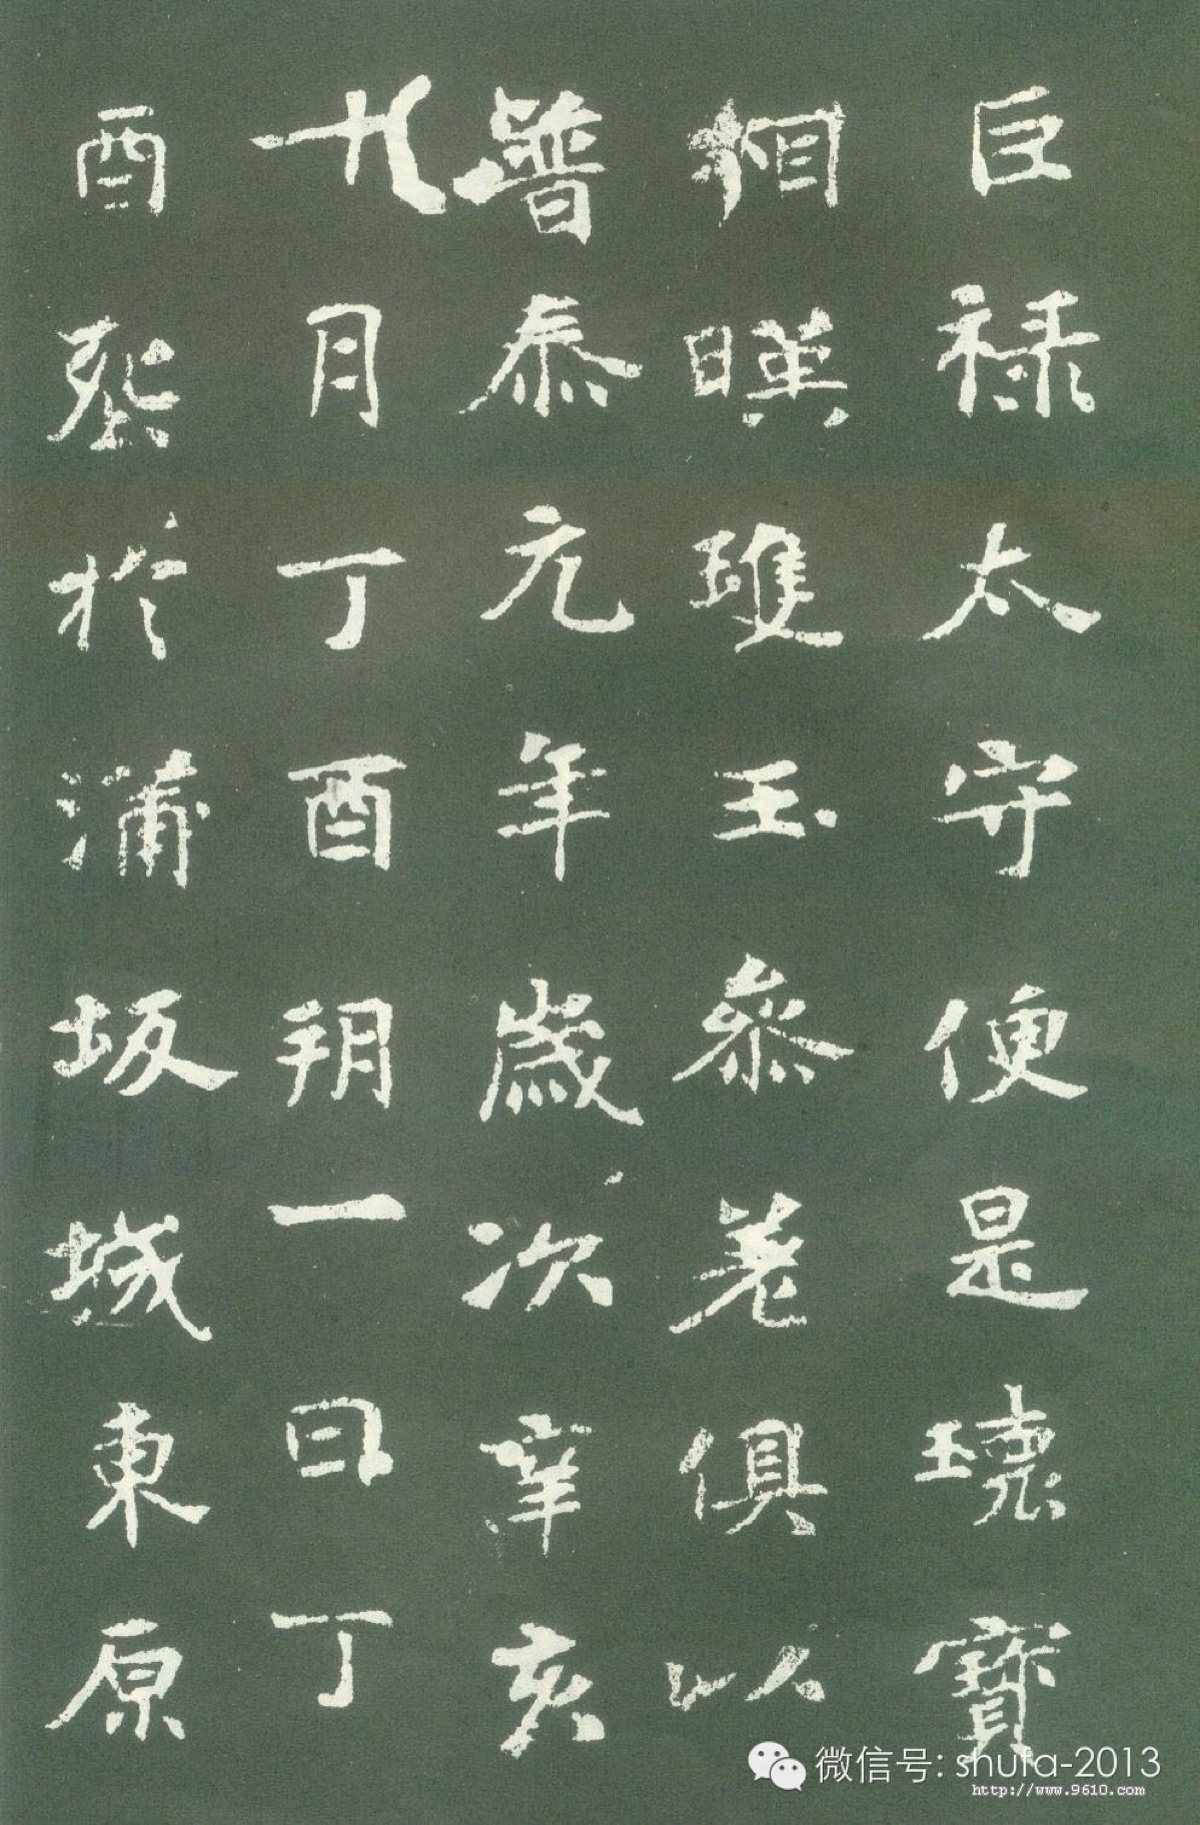 巨禄太守便是瓌寶
相暎雙玉參差俱以
普泰元年歲次辛亥
十月丁酉朔一日丁
酉葬於蒲坂城東原
微信号: shufa-2013
http://www.9610.com